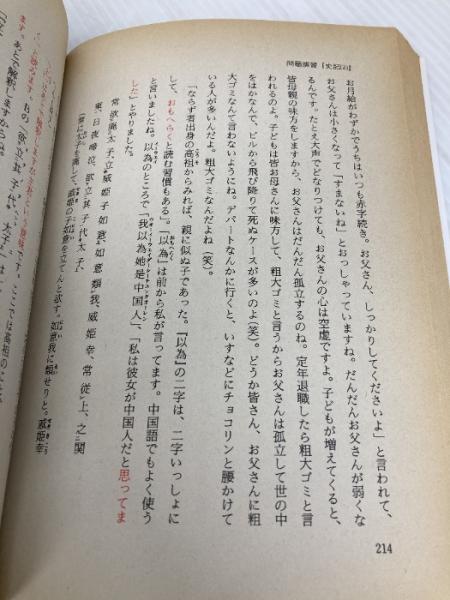 問題演習【史記(3)】
お月給がわずかでうちはいつも赤字続き。お父さん、しっかりしてくださいよ」と言われて、
お父さんは小さくなって「すまないね」とおっしゃっていますね。だんだんお父さんが弱くな
るんです。たとえ大声でどなりつけても、お父さんの心は空虚ですよ。子どもが増えてくると、
皆母親の味方をしますから、お父さんはだんだん孤立するのね。定年退職したら粗大ゴミと言
われるのよ。子どもは皆お母さんに味方して、粗大ゴミと言うからお父さんは孤立して世の中
をはかなんで、ビルから飛び降りて死ぬケースが多いのよ(笑)。どうか皆さん、お父さんに粗
大ゴミなんて言わないようにね。デパートなんかに行くと、いすなどにチョコリンと腰かけて
いる人が多いんだよ。粗大ゴミなんだよね(笑)。
「ならず者出身の高祖からみれば、親に似ぬ子であった。『以為』の二字は、二字いっしょに
して、おもへらくと読む習慣もある。『以為』は前から私が言ってます。中国語でもよく使う
と言いましたね。以為のところで「我以為她是中国人」、「私は彼女が中国人だと思ってま
した」とやりました。
常欲廃太子、立戚姫子如意。如意類我。戚姫幸、常従上、之関
東、日夜啼泣、欲立其子代太子。
常に太子を廃して、戚姫の子如意を立てんと欲す。如意我に類せりと。戚姫幸
214